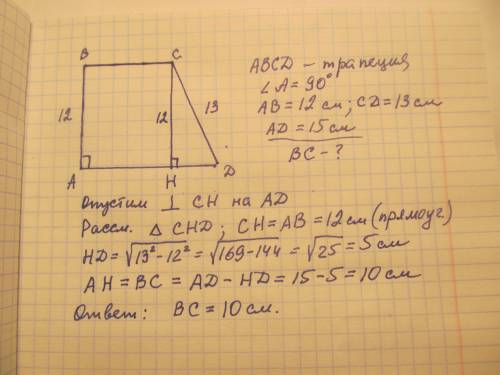 B C
12 12 13
A H D
ABCD – трапеция
∠A = 90°
AB = 12 см; CD = 13 см
AD = 15 см
BC – ?
Опустим ⊥ CH на AD
Рассм. △ CHD; CH = AB = 12 см (прямоуг)
HD = √13² – 12² = √169 – 144 = √25 = 5 см
AH = BC = AD – HD = 15 – 5 = 10 см
Ответ: BC = 10 см.